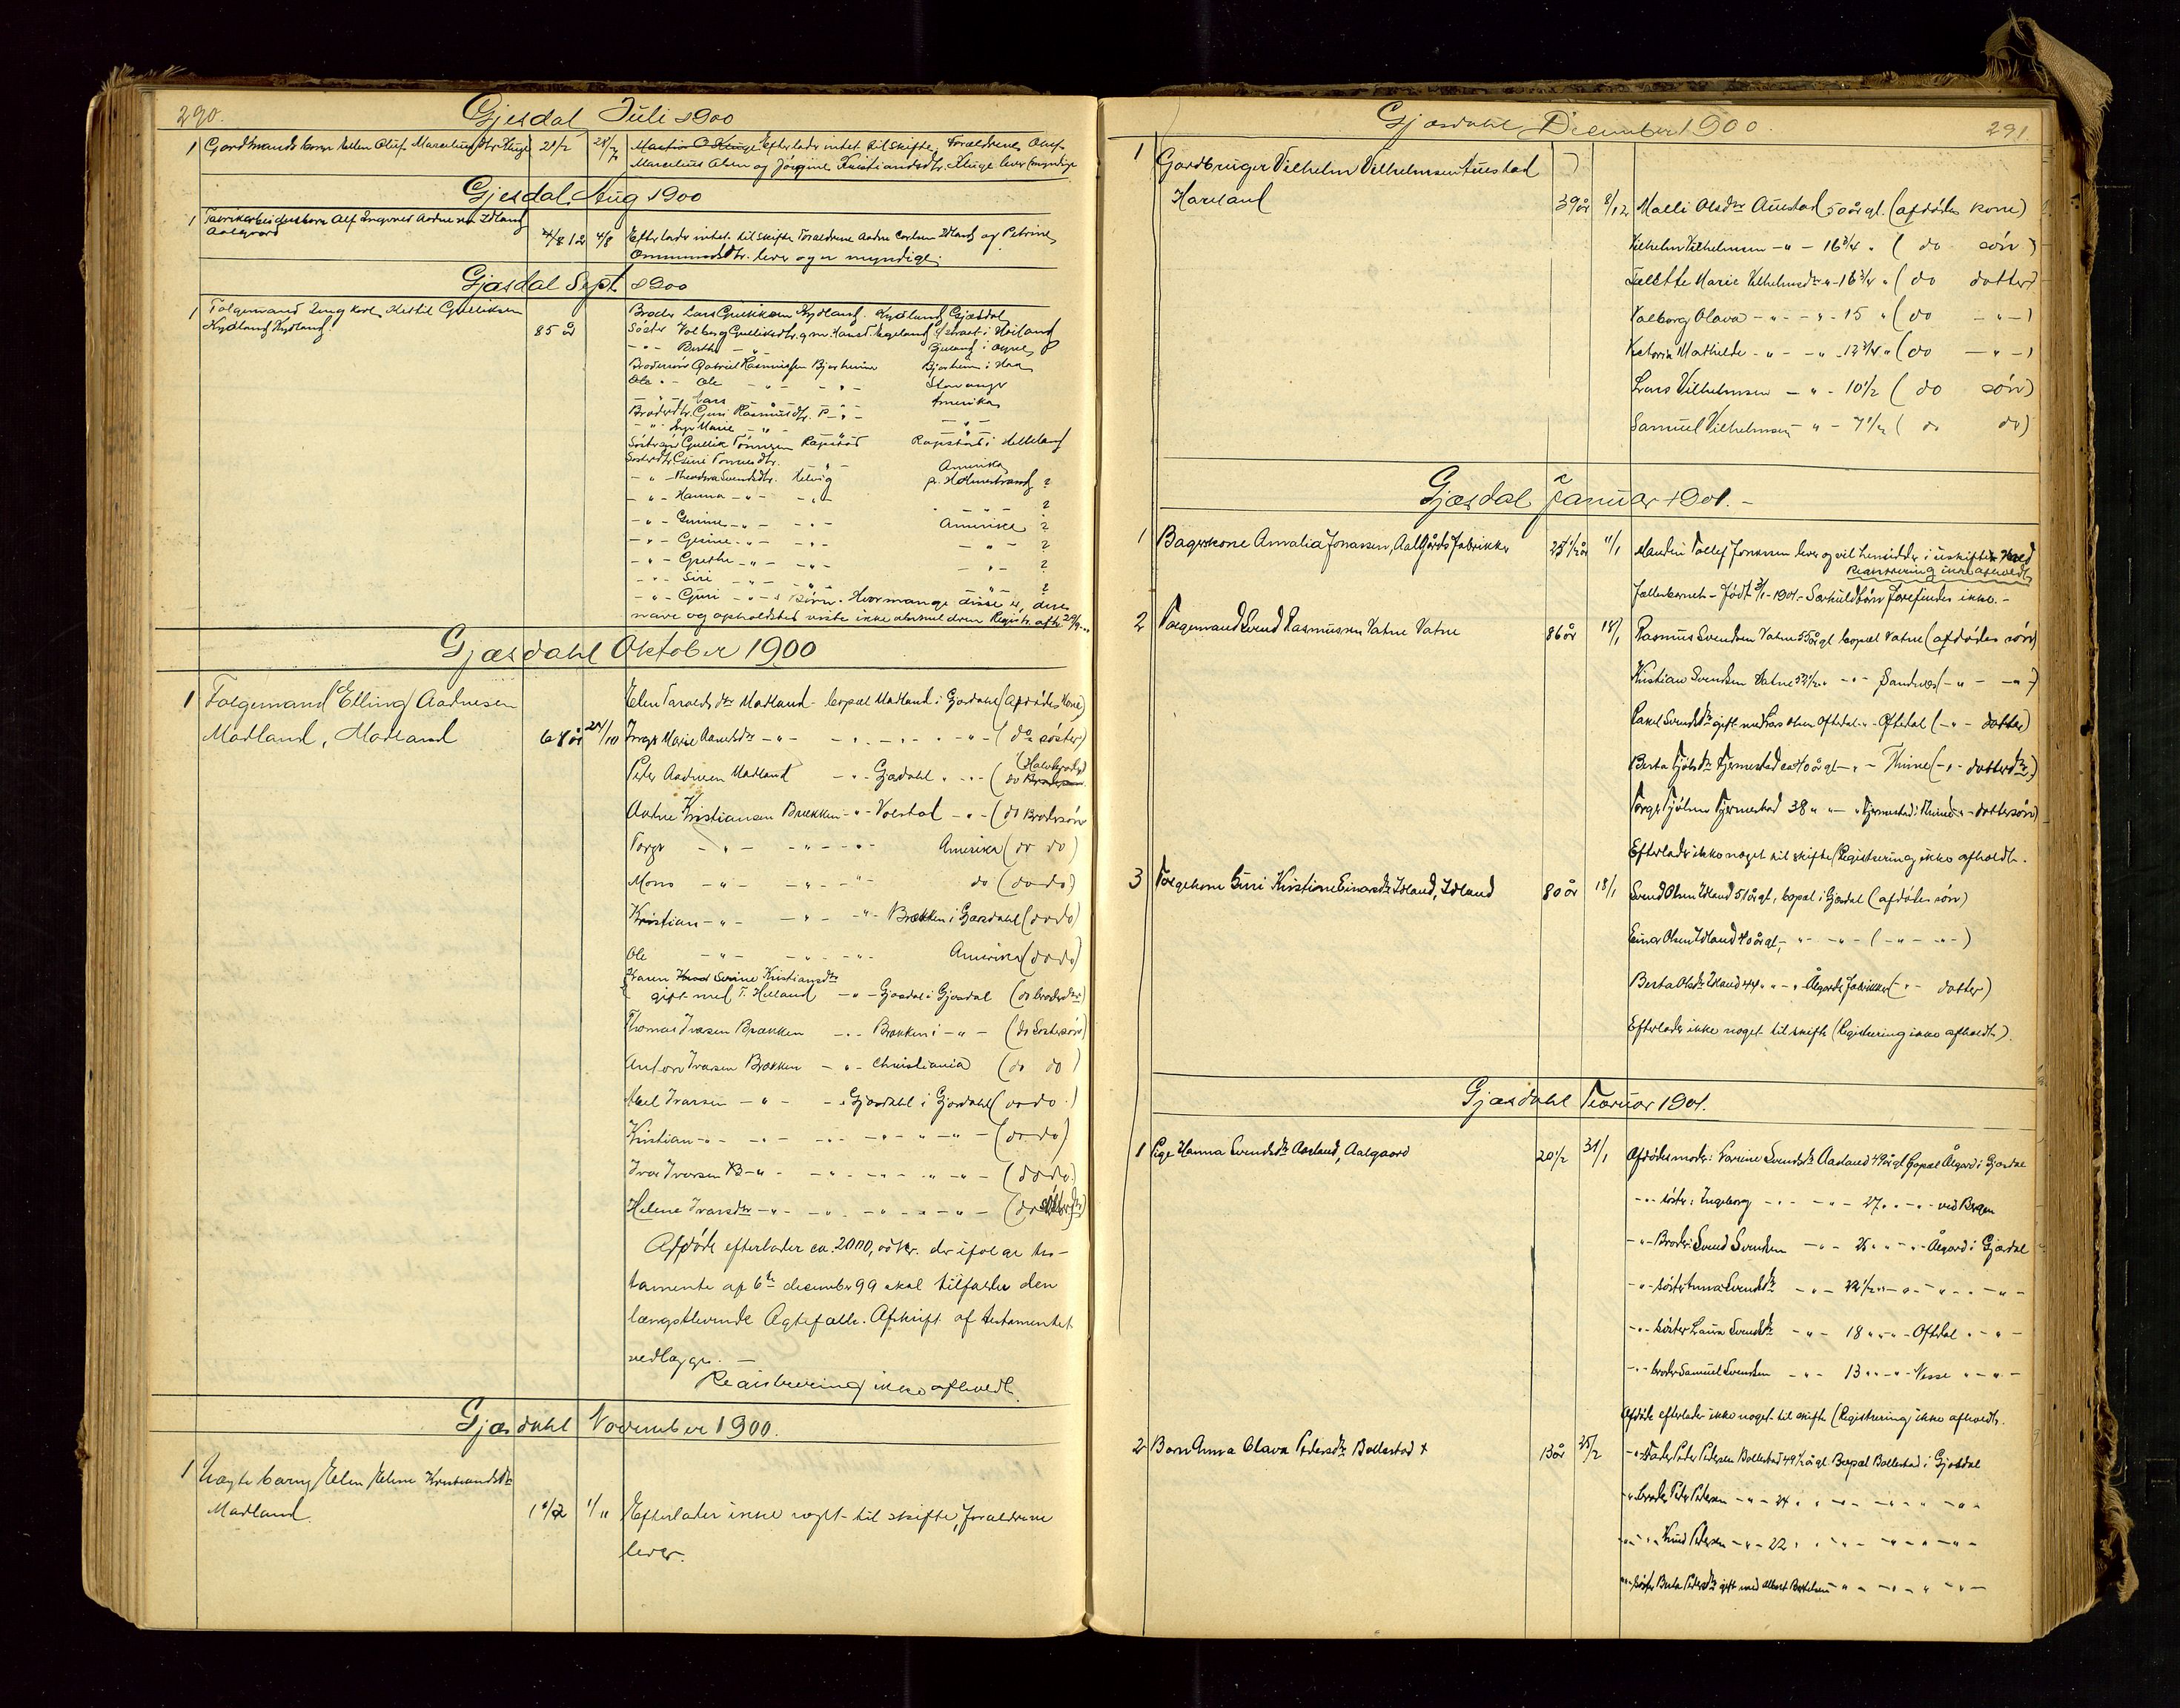 290.
Gjesdal Juli 1900
1 Gardmands barn Ellen Oluf Marcelius dtr. Kluge 2 1/2 28/7 Martin O Kluge Efterlader intet til skifte, Forældrene Oluf
Marcelius Olsen og Jörgine Kristiansdtr. Kluge lever (myndige
Gjesdal Aug 1900
1 Fabrikarbeiders barn Alf Ingvart Aadnesen Idland
Aalgaard 4/8 Efterlader intet til skifte Foraldrene Aadne Carlsen Idland og Petrine
Ommundsdtr. lever og er myndige.
Gjæsdal Sept 1900
1 Folgemand Ungkarl Kittil Gulliksen
Kydland, Kydland 85 år
Broder Lars Gulliksen Kydland, Kydland, Gjæsdal
Söster Valborg Gulliksdtr. g. m. Hans T. Iegeland
- " - Berthe - " -
Brodersön Gabriel Rasmussen Bjorheim Bjorheim i Haa
- " - Ole - " - - " - Stavanger
- " - Lars - " - Amerika
Broderdtr. Guri Rasmusdtr. - " -
- " - Inger Marie - " - - " -
Söstersön Gullik Tönnesen Rapstad Rapstad i Helleland
Sösterdtr. Gurine Tonnesdtr. - " - Amerika
- " - Theodora Svendsdtr. Helvig p. Holmestrand ?
- " - Hanna - " - - " - - " - ?
- " - Gurine - " - - " - Amerika ?
- " - Gesine - " - - " - - " - ?
- " - Grethe - " - - " - - " - ?
- " - Siri - " - - " - - " - ?
- " - Guri - " - s Börn. Hvormange disse er, deres
navne og opholdsted viste ikke anmelderen Registr. afh. 29/9.
Gjæsdahl Oktober 1900
1 Folgemand Elling Aadnesen Elen Taraldsdtr Madland - bopæl Madland i Gjesdahl (Afdödes Kone)
Madland, Madland 68 år 24/10 Inger Marie Aanedsdtr - " - - " - - " - - " - (do söster)
Peder Aadnesen Madland - " - Gjædahl " - " - (do Halvbroder)
Aadne Kristiansen Brækken - " - Volestad - " - (do Brodersön
Torger - " - - " - - " - Amerika (do do)
Mons - " - - " - - " - do (do do)
Kristian - " - - " - - " - Brækken i Gjæsdahl (do do)
Ole - " - - " - - " - Amerika (do do)
Karen Serine Kristiansdtr
gift med T. Helland - " - Gjæsdal i Gjæsdal (do broderdtr)
Thomas Ivarsen Brækken - " - Brækken i - " - (do Söstersön)
Anton Ivarsen Brækken - " - Christiania (do do)
Axel Ivarsen - " - - " Gjæsdahl i Gjæsdahl (do do)
Kristian - " - - " - - " - - " - - " - (do do)
Ivar Ivarsen B - " - - " - - " - - " - (do do)
Helene Ivarsdtr - " - - " - - " - - " - (do sösterdtr)
Afdöde efterlader ca. 2000,00 kr. der ifolge tes-
tamente af 6te desember 99 skal tilfalde den
længstlevende Ægtefælle. Afskrift af testamentet
vedlægges. -
Registrering ikke afholdt.
Gjæsdahl November 1900.
1 Uægte barn Elen Elene Kristiansdtr
Madland. 1 1/2 1/11 Efterlader ikke noget til skifte, foraldrene
lever.
Gjæsdahl December 1900.
291.
1 Gardbruger Vilhelm Vilhelmsen Auestad
Haveland 39 år 8/12 Malli Olsdtr Auestad 50 år gl. (afdödes kone)
Vilhelm Vilhelmsen - " - 16 3/4 " (do sön)
Marie Vilhelmsdtr " - 16 3/4 " (do datter)
Valborg Olava - " - - " - 15 " (do - " -)
Victoria Mathilde - " - - " - 12 3/4 " (do - " -)
Lars Vilhelmsen - " - 10 1/2 (do sön)
Samuel Vilhelmsen - " - 7 1/2 (do do)
Gjæsdal Januar 1901. -
1 Bagerkone Amalia Jonassen, Aalgårds Fabrikker 25 1/2 år 11/1 Manden Tollef Jonassen lever og vil hensidde i uskifte med
Registrering ikke afholdt
Fællesbarnet - Född 3/1 - 1901. - Særkuldbörn forefindes ikke. -
2 Folgemand Svend Rasmussen Vatne Vatne 86 år 18/1 Rasmus Svendsen Vatne 55 år gl. bopæl Vatne (afdödes sön)
Kristian Svendsen Vatne 52 1/2 " - " - Sandnes (- " - - " -)
Rakel Svendsdtr gift med Lars Olsen Oftedal " - Oftedal (- " - datter)
Berta Tjölsdtr Tjermestad ca 40 år gl - " - Thime (- " - datterdtr)
Torger Tjölsen Tjermestad 38 " " - " Tjermestad i Thime " - dattersön)
Efterlader ikke noget til skifte (Registrering ikke afholdt.
3 Folgekone Guri Kristine Einarsdtr Idland, Idland 80 år 18/1 Svend Olsen Idland 51 år gl, bopæl i Gjesdal (afdödes sön)
Einar Olsen Idland 40 år gl, - " - - " - (- " - - " -)
Berta Olsdtr Idland 44 " " - " Ålgårds fabrikker (- " - datter)
Efterlader ikke noget til skifte (Registrering ikke afholdt).
Gjæsdahl Februar 1901.
1 Pige Hanna Svendsdtr Aasland, Aalgaard 20 1/2 31/1 Afdödes moder: Severine Svendsdtr Aasland 49 år gl bopæl Ålgård i Gjesdal
- " - söster: Ingeborg - " - - " - 27 " " - " - ved Bergen
- " - Broder: Svend Svendsen - " - 25 " " - " - Ålgård i Gjesdal
- " - söster Anna Svendsdtr - " - 22 1/2 " - " - " - " - " -
- " - söster Laura Svendsdtr - " - 18 " " - Oftedal " - " -
- " - broder Samuel Svendsen - " - 13 " " - " - Nesse " - " -
Afdöde efterlader ikke noget til skifte (Registrering ikke afholdt.
2 Barn Anna Olava Pedersdtr Bollestad + 13 år 25/2 - " - Fader Peder Pedersen Bollestad 49 1/2 år gl. Bopæl Bollestad i Gjesdal
- " broder Peder Pedersen - " - 24 " " - " - - " - " - " -
- " - " - Knud Pedersen - " - 22 " " - " - - " - " - " -
- " - söster Berta Pedersdtr gift med Albert Bertelsen - " - " - " - " -